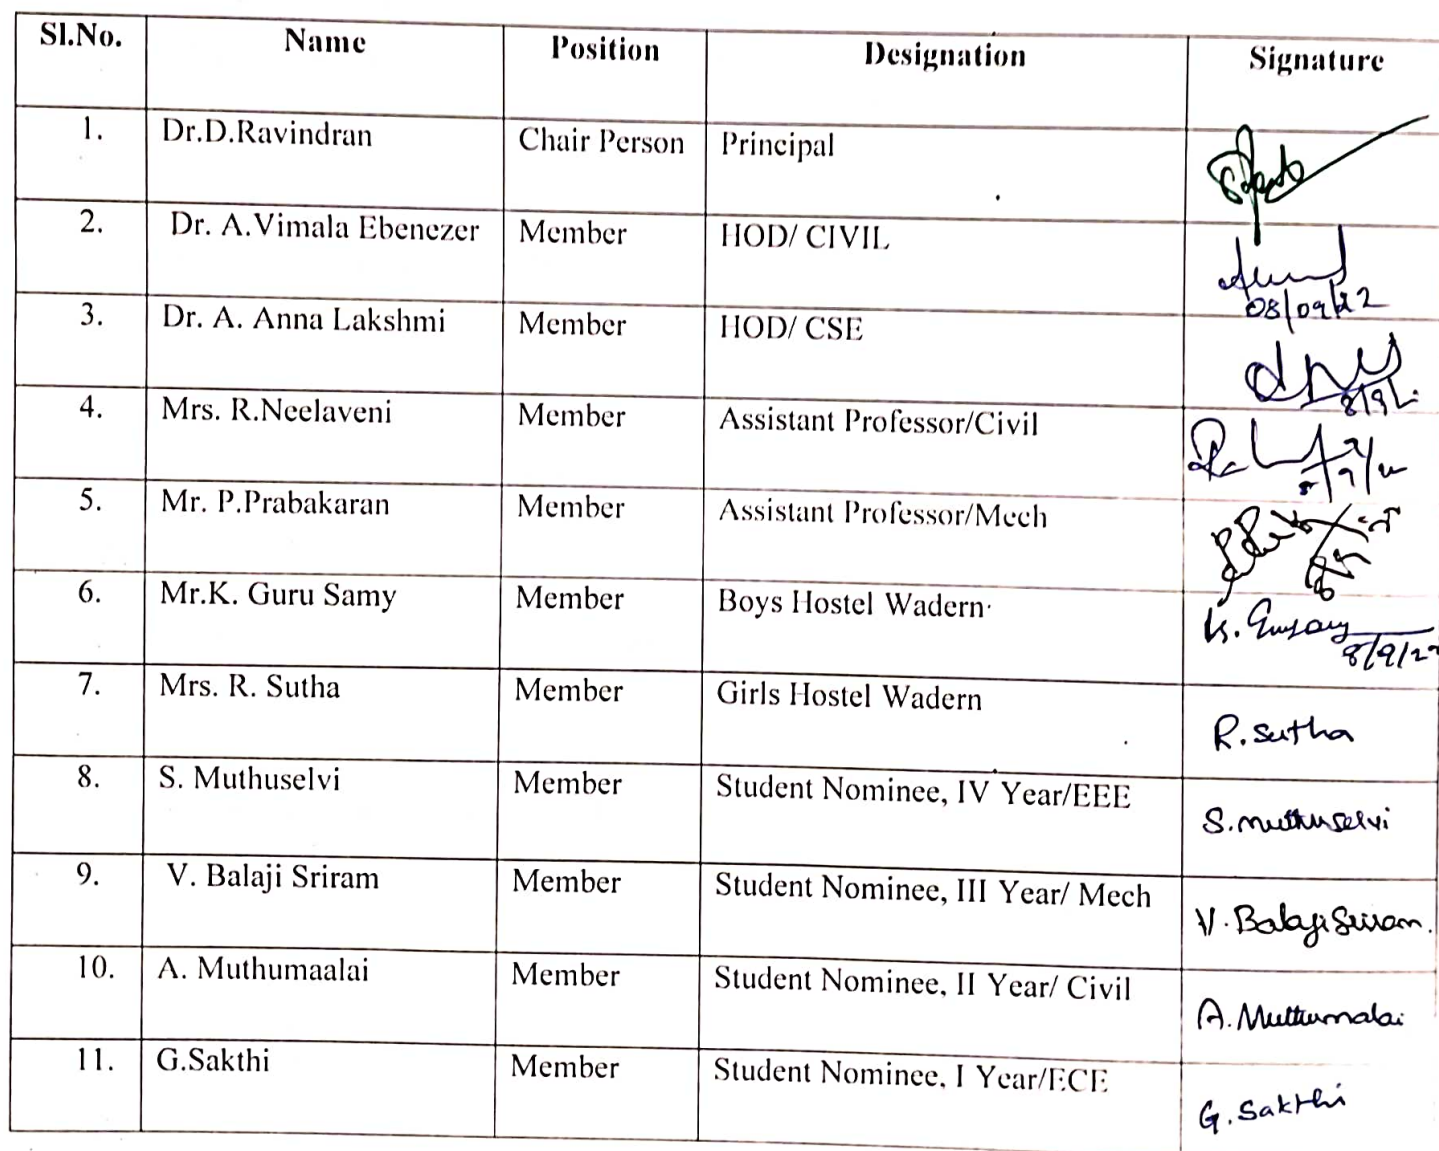 Sl.No. Name Position Designation Signature
1. Dr.D.Ravindran Chair Person Principal
2. Dr. A.Vimala Ebenezer Member HOD/ CIVIL
08/09/22
3. Dr. A. Anna Lakshmi Member HOD/ CSE
4. Mrs. R.Neelaveni Member Assistant Professor/Civil
5. Mr. P.Prabakaran Member Assistant Professor/Mech
6. Mr.K. Guru Samy Member Boys Hostel Wadern
8/9/22
7. Mrs. R. Sutha Member Girls Hostel Wadern R.Sutha
8. S. Muthuselvi Member Student Nominee, IV Year/EEE S.muthuselvi
9. V. Balaji Sriram Member Student Nominee, III Year/ Mech V. Balaji Sriram.
10. A. Muthumaalai Member Student Nominee, II Year/ Civil A. Muthumalai
11. G.Sakthi Member Student Nominee, I Year/ECE G. Sakthi